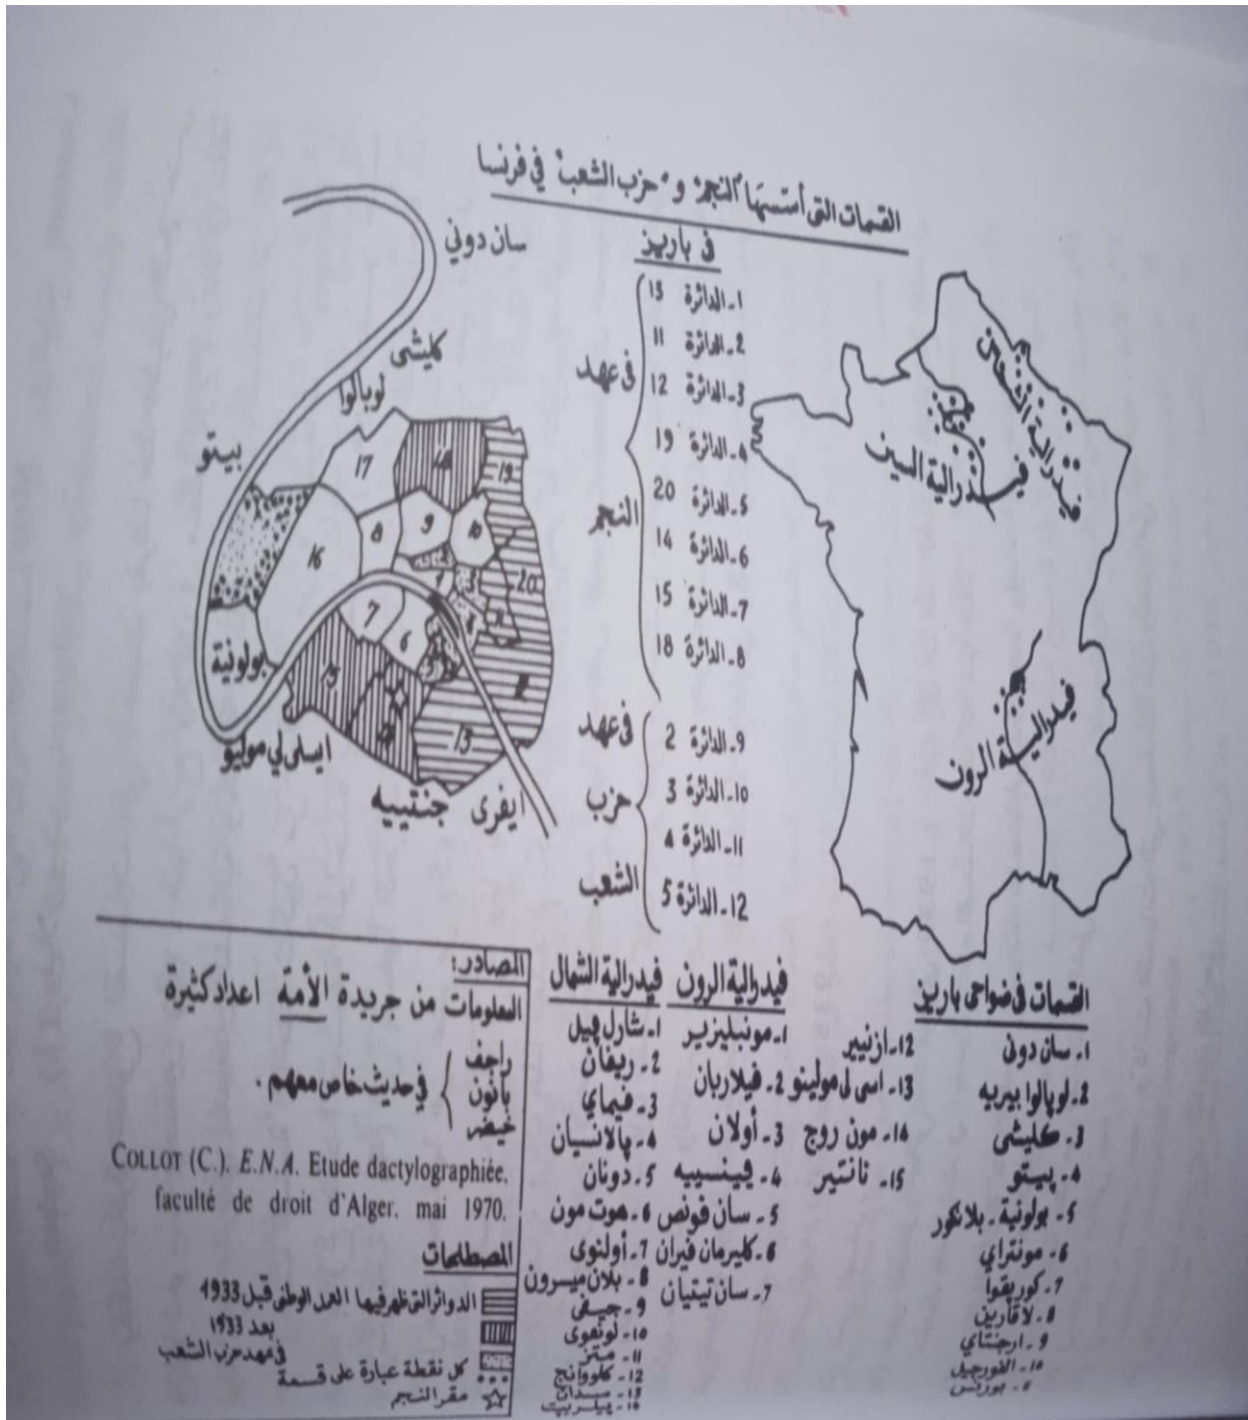 القسمات التى أسسها "النجم" و "حزب الشعب" في فرنسا
فى باريز
1ـ الدائرة 13
2ـ الدائرة 11
3ـ الدائرة 12
4ـ الدائرة 19
5ـ الدائرة 20
6ـ الدائرة 14
7ـ الدائرة 15
8ـ الدائرة 18
فى عهد
النجم
9ـ الدائرة 2
10ـ الدائرة 3
11ـ الدائرة 4
12ـ الدائرة 5
فى عهد
حزب
الشعب
سان دوني
كليشى
لوبالوا
بيتو
بولونية
ايسلى لي موليو
جنتييه
ايفرى
17
18
19
16
8
9
10
20
7
6
15
13
فيدرالية الشمال
فيدرالية السين
فيدرالية الرون
القسمات فى ضواحى باريز
1ـ سان دونى
2ـ لوپالوا بيريه
3ـ كليشى
4ـ پيتو
5ـ بولونية ـ بلانكور
6ـ مونتراي
7ـ كوربقوا
8ـ لاقارين
9ـ ارجنتاي
12ـ ازنيير
13ـ اسى لى مولينو
14ـ مون روج
15ـ نانتير
فيدوالية الرون
1ـ مونبليزير
2ـ فيلاربان
3ـ أولان
4ـ فينسييه
5ـ سان فونص
6ـ كليرمان فيران
7ـ سان تيتيان
فيدرالية الشمال
1ـ شارل فيل
2ـ ريفان
3ـ فيماي
4ـ پالانسيان
5ـ دونان
6ـ هوت مون
7ـ أولنوى
8ـ بلان ميسرون
9ـ جيفى
10ـ لونغوى
11ـ متز
12ـ كلووانج
المصادر:
المعلومات من جريدة الأمة اعداد كثيرة
راجف
بانون
خيضر
في حديث خاص معهم .
COLLOT (C.). E.N.A. Etude dactylographiée.
faculté de droit d'Alger. mai 1970.
المصطلحات
الدوائر التى ظهر فيها العمل الوطنى قبل 1933
بعد 1933
فى عهد حزب الشعب
كل نقطة عبارة على قسمة
مقر النجم